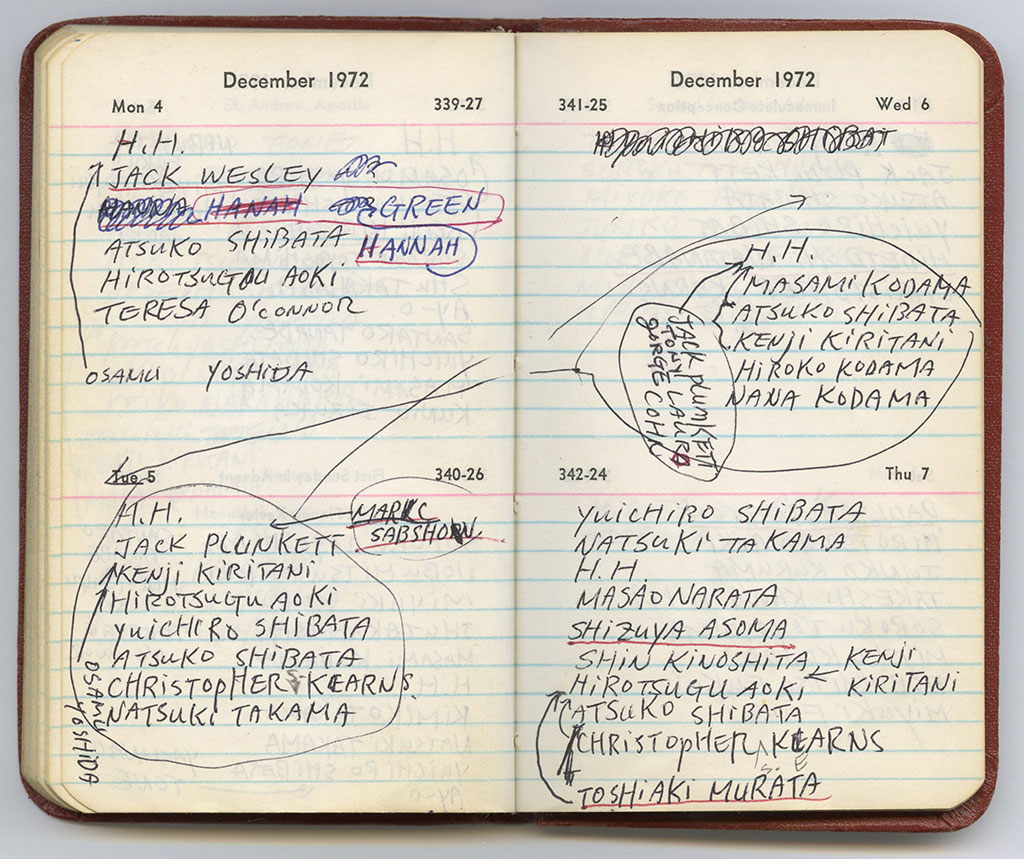 December 1972
Mon 4 339-27
H.H.
JACK WESLEY
HANAH GREEN
ATSUKO SHIBATA HANNAH
HIROTSUGU AOKI
TERESA O'CONNOR
OSAMU YOSHIDA
Tue 5 340-26
H.H.
MARC
SABSHORN
JACK PLUNKETT
KENJI KIRITANI
HIROTSUGU AOKI
YUICHIRO SHIBATA
ATSUKO SHIBATA
CHRISTOPHER S. KEARNS
NATSUKI TAKAMA
OSAMU YOSHIDA
December 1972
341-25 Wed 6
H.H.
MASAMI KODAMA
ATSUKO SHIBATA
KENJI KIRITANI
HIROKO KODAMA
NANA KODAMA
JACK PLUNKETT
TONY LAURO
GORGE COHN
342-24 Thu 7
YUICHIRO SHIBATA
NATSUKI TAKAMA
H.H.
MASAO NARATA
SHIZUYA ASOMA
SHIN KINOSHITA KENJI
HIROTSUGU AOKI KIRITANI
ATSUKO SHIBATA
CHRISTOPHER S. KEARNS
TOSHIAKI MURATA